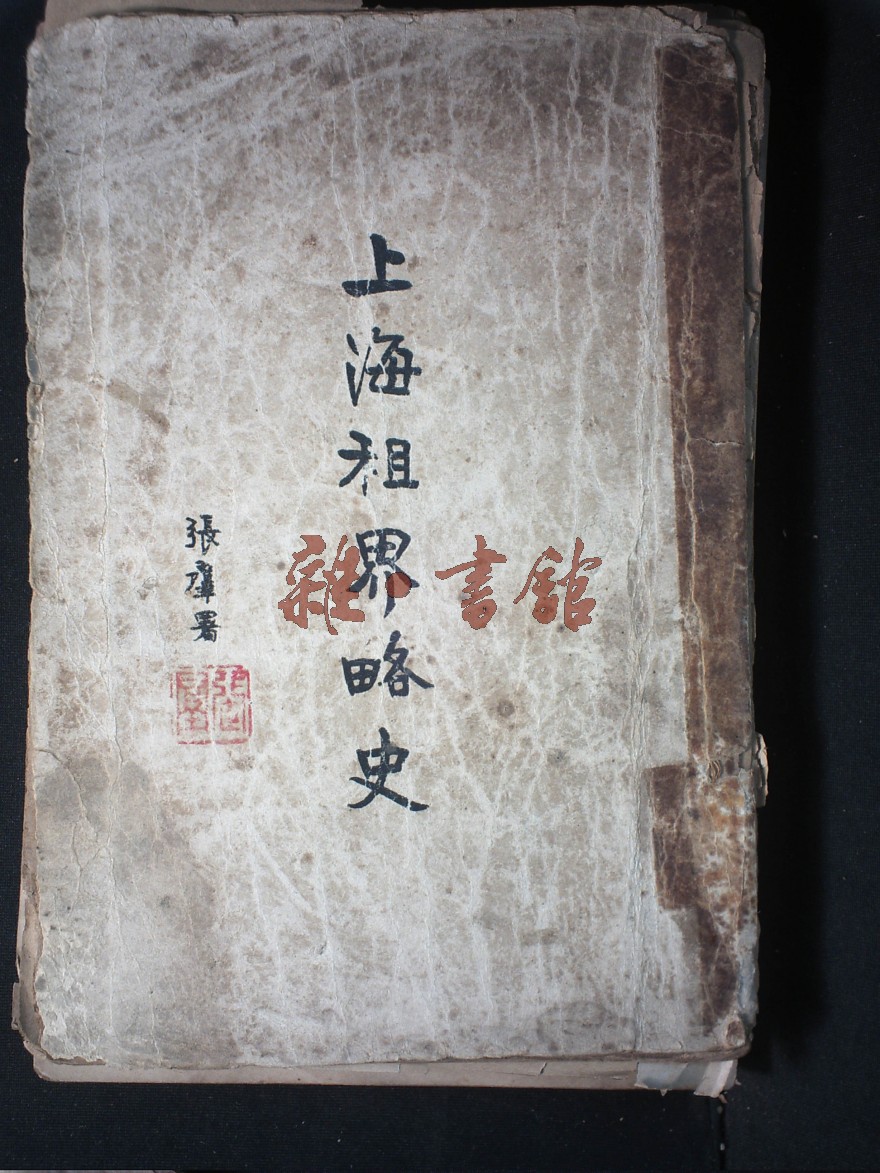 上海租界略史
張羣署
雜·書館